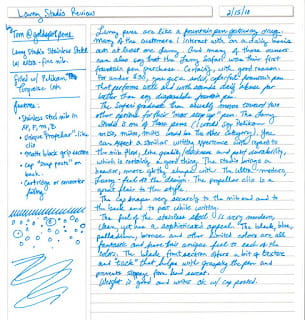 Lamy Studio Review
2/15/18
Tom @goldspotpens
Lamy Studio Stainless Steel
w/ extra-fine nib
Filled w/ Pelikan
Turquoise Ink
Features:
• Stainless Steel nib in
EF, F, M, B
• Unique "Propellor"-like
clip
• Matte black grip section
• Cap "snap posts" on
back.
• Cartridge or converter
filling
Lamy pens are like a fountain pen gateway drug.
Many of the customers I interact with on a daily basis
own at least one Lamy. And many of those owners
can also say that the Lamy Safari was their first
fountain pen purchase. Certainly, with good reason.
For under $30, you get a solid, colorful fountain pen
that performs well and with stands daily abuse far
better than any disposable fountain pen.
The Safari graduate then usually moves toward two
other options for their "next step up" pen. The Lamy
Studio is one of those pens (I would say Pelikan
would be the other category). You
can expect a similar writing experience with regard to
the ink flow, line quality, thickness and nib reliability,
which is certainly a good thing. The Studio brings a
heavier, more girthy shape with the ultra-modern,
Lamy-feel of the design. The propellor clip is a
great flair to the style.
The cap snaps very securely to the nib end and to
the back end to post while writing.
The feel of the stainless steel is very modern,
clean, yet has a sophisticated appeal. The black, blue,
palladium, bronze and other limited colors are all
fantastic and have this unique feel to each of the
colors. The black front section offers a bit of texture
and "tack" that helps with grasping the pen and
prevents slippage from hand sweat.
Weight is good and writes ok w/ cap posted.